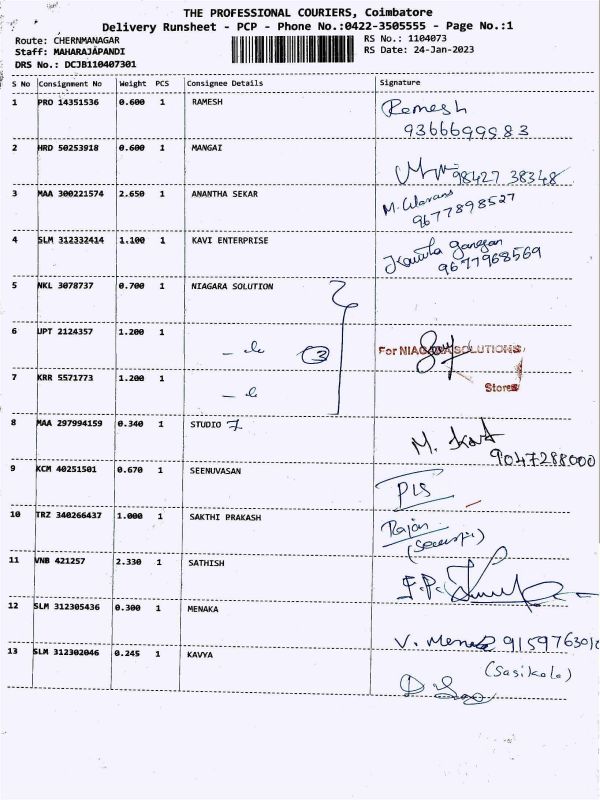 THE PROFESSIONAL COURIERS, Coimbatore
Delivery Runsheet - PCP - Phone No.:0422-3505555 - Page No.:1
Route: CHERNMANAGAR
RS No.: 1104073
Staff: MAHARAJAPANDI
RS Date: 24-Jan-2023
DRS No.: DCJB110407301
S No Consignment No Weight PCS Consignee Details Signature
1 PRO 14351536 0.600 1 RAMESH Ramesh
9366699983
2 HRD 50253918 0.600 1 MANGAI
98427 38348
3 MAA 300221574 2.650 1 ANANTHA SEKAR
9677898527
4 SLM 312332414 1.100 1 KAVI ENTERPRISE
9677968569
5 NKL 3078737 0.700 1 NIAGARA SOLUTION
6 UPT 2124357 1.200 1 3 For NIAGARA SOLUTIONS
7 KRR 5571773 1.200 1 Stores
8 MAA 297994159 0.340 1 STUDIO 7 M.
9047288000
9 KCM 40251501 0.670 1 SEENUVASAN
10 TRZ 340266437 1.000 1 SAKTHI PRAKASH Rajan
11 VNB 421257 2.330 1 SATHISH
12 SLM 312305436 0.300 1 MENAKA
V.
13 SLM 312302046 0.245 1 KAVYA (Sasikala)